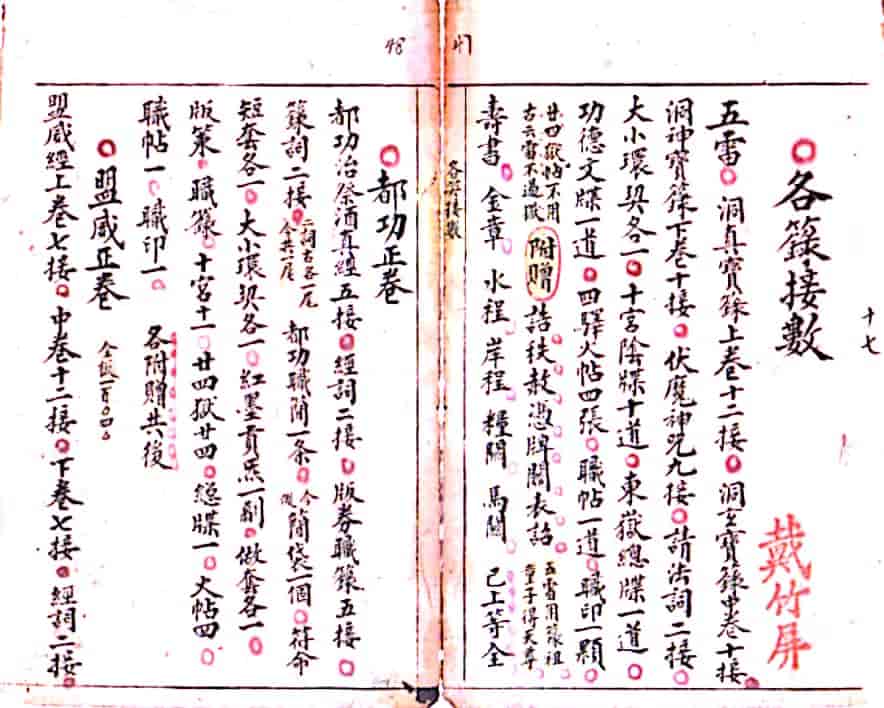 47
十七
戴竹屏
各籙接數
五雷 洞真寶籙上卷十二接 洞玄寶籙中卷十接
洞神寶籙下卷十接 伏魔神咒九接 請法詞二接
大小環契各一 十宮陰牒十道 東嶽總牒一道
功德文牒一道 四驛火帖四張 職帖一道 職印一顆
廿四獄怕不用
古云雷不過獄
附贈
誥秩赦憑牌關表詔
五雷用張祖
童子得天尊
壽書 金章 水程 岸程 糧關 馬關 已上等全
各籙接數
48
都功正卷
都功治祭酒真經五接 經詞二接 版券職籙五接
籙詞二接
二詞古各一尾
今共一尾
都功職簡一条
簡袋一個 符命
短套各一 大小環契各一 紅墨貢炁一劄 做套各一
版策 職籙 十宮十一 廿四獄廿四 總牒一 大帖四
職帖一 職印一 各附贈共後
盟威正卷
盟威經上卷七接 中卷十二接 下卷七接 經詞二接